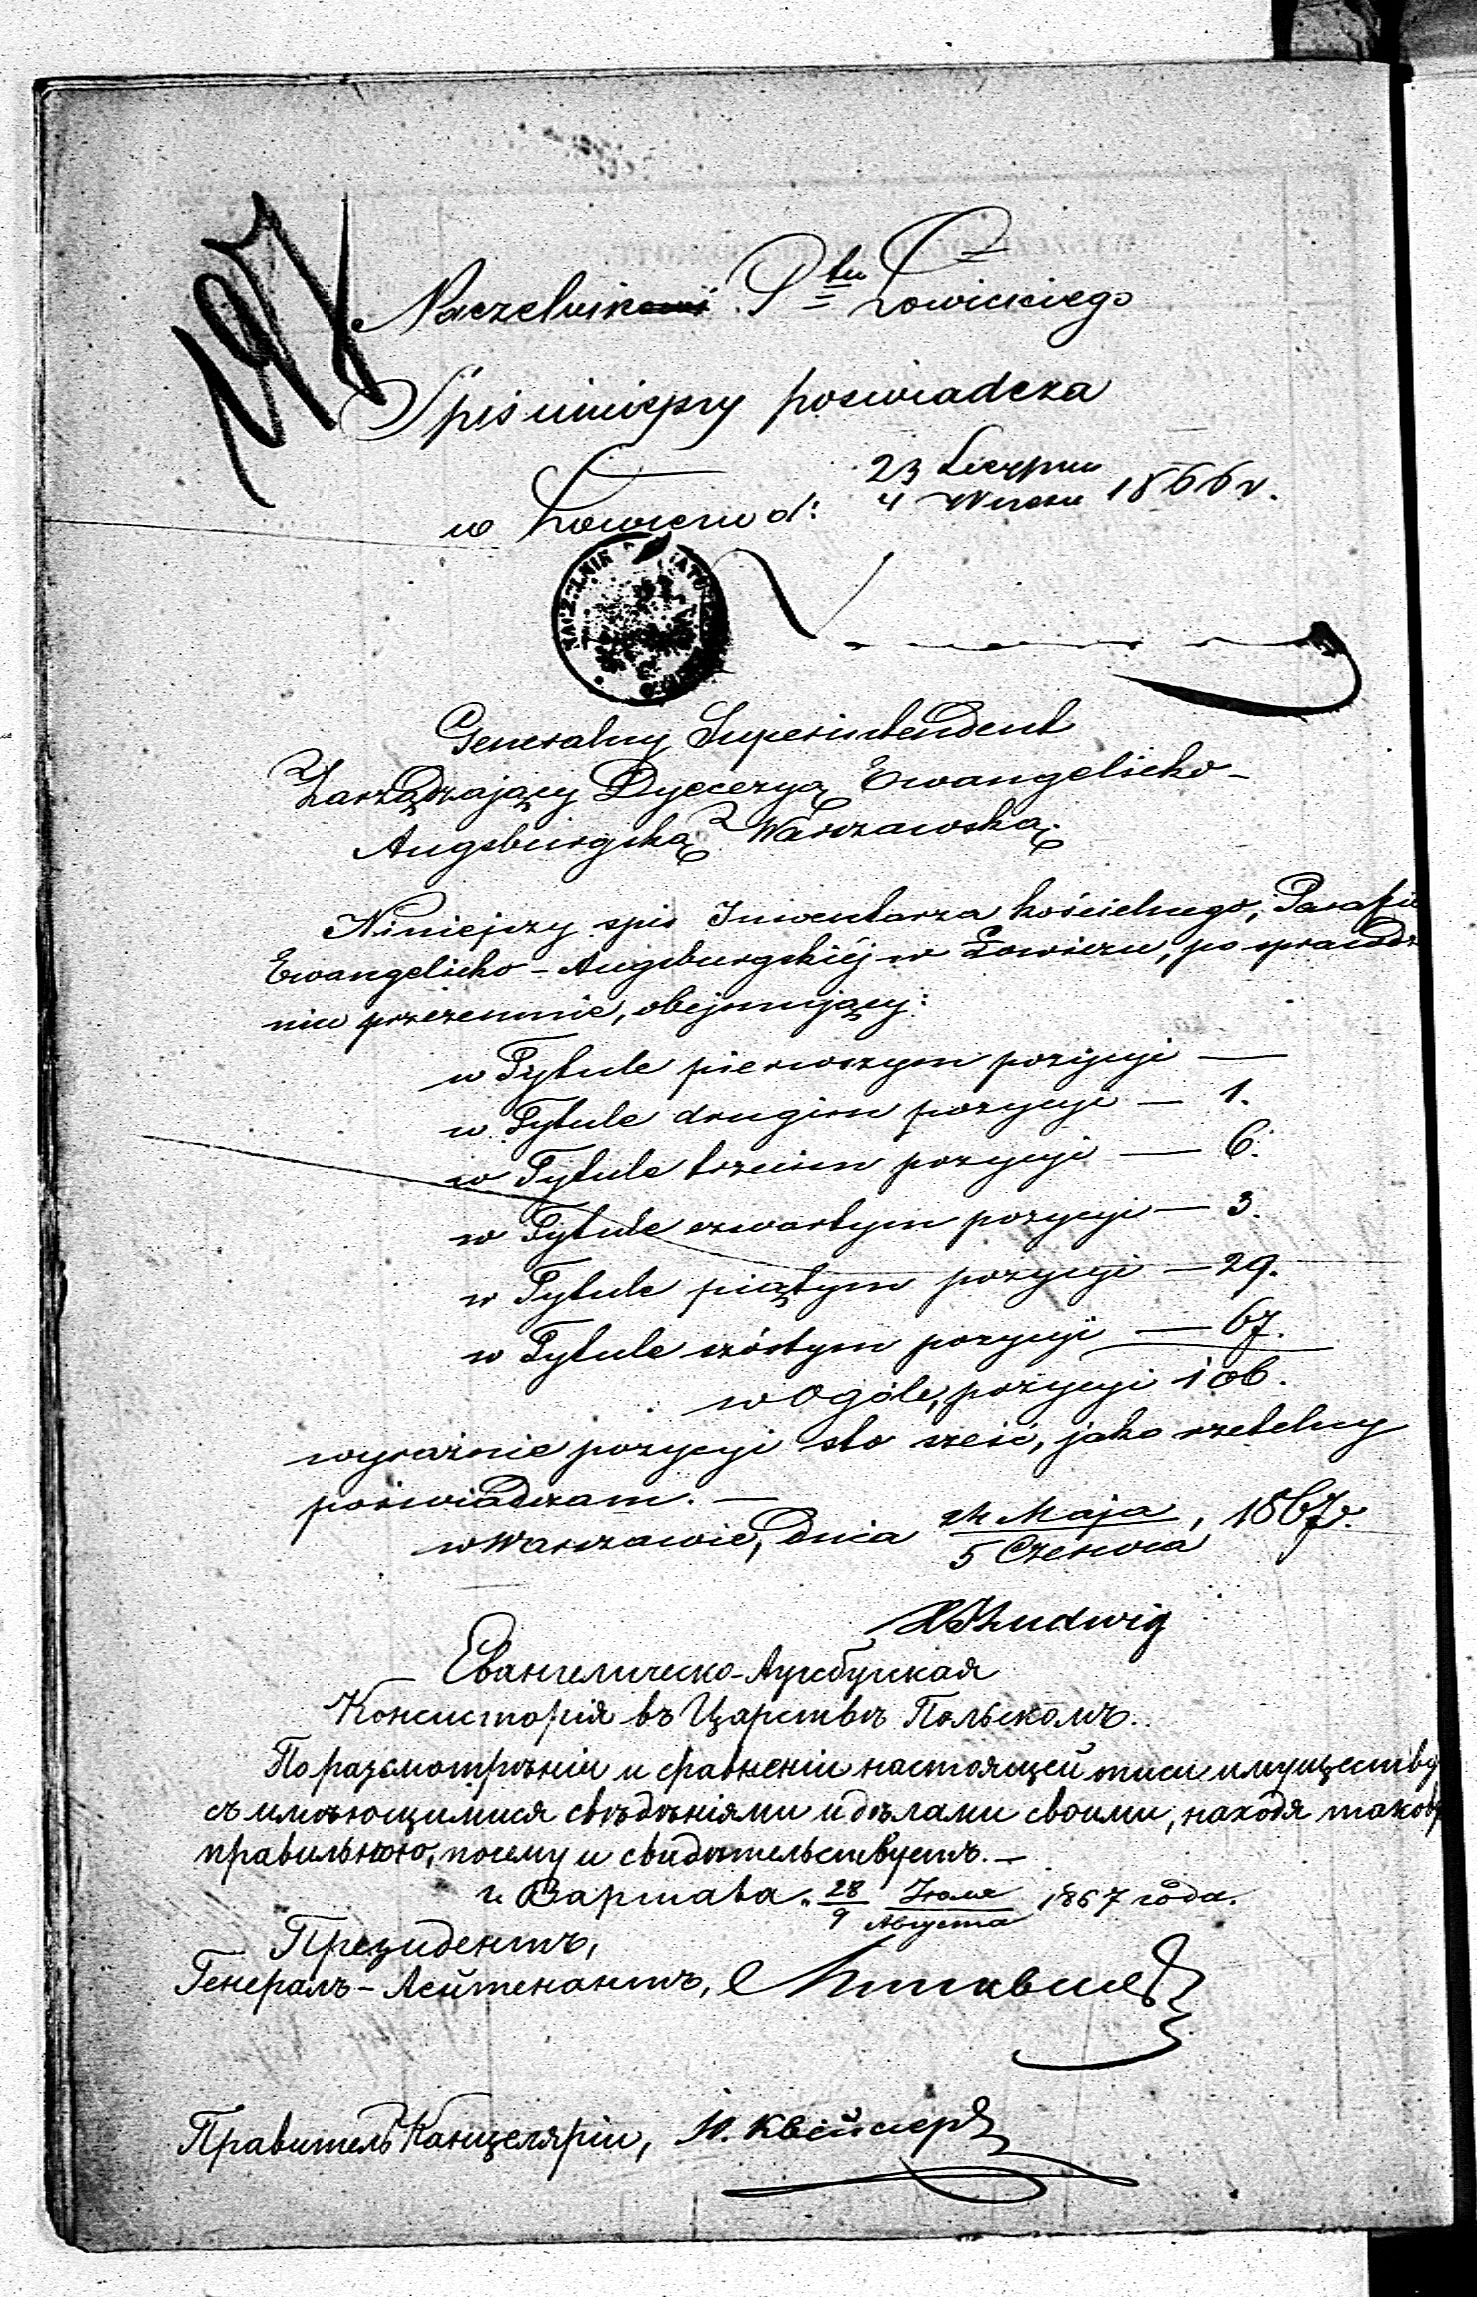 197
Naczelnik Ptu Łowickiego
Spis niniejszy poświadcza
w Łowiczu d: 23 Sierpnia / 4 Wrześn 1866 r.
NACZELNIK
Generalny Superintendent
Zarządzający Dyecezyą Ewangelicko-
Augsburgską Warszawską.
Niniejszy spis Inwentarza kościelnego, Parafii
Ewangelicko-Augsburgskiéj w Łowiczu, po sprawdz
niu przezemnie, obejmujący:
w Tytule pierwszym pozycyi —
w Tytule drugim pozycyi — 1.
w Tytule trzecim pozycyi — 6.
w Tytule czwartym pozycyi — 3.
w Tytule piątym pozycyi — 29.
w Tytule szóstym pozycyi — 67.
w Ogóle, pozycyi 106.
wyraźnie pozycyi sto sześć, jako rzetelny
poświadczam. —
w Warszawie, dnia 24 Maja / 5 Czerwca, 1867 r.
Ludwig
Евангелическо-Аугсбургская
Консисторія въ Царствѣ Польскомъ.
По разсмотрѣніи и сравненіи настоящей описи имуществу
съ имѣющимися свѣдѣніями и дѣлами своими, находя таков
правильною, почему и свидѣтельствуетъ. —
г. Варшава. 28 Іюля / 9 Августа 1867 года.
Президентъ,
Генералъ-Лейтенантъ,
Правитель Канцеляріи,